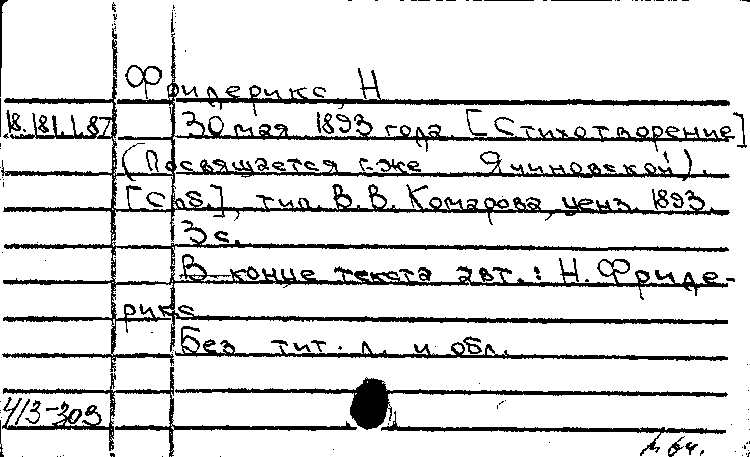 Фридерикс, Н
18.181.1.87 30 мая 1893 года. [Стихотворение]
(Посвящается г-же Ячиновской).
[Спб.], тип. В. В. Комарова, ценз. 1893.
3 с.
В конце текста авт.: Н. Фриде-
рикс
Без тит. л. и обл.
Ч/3-303